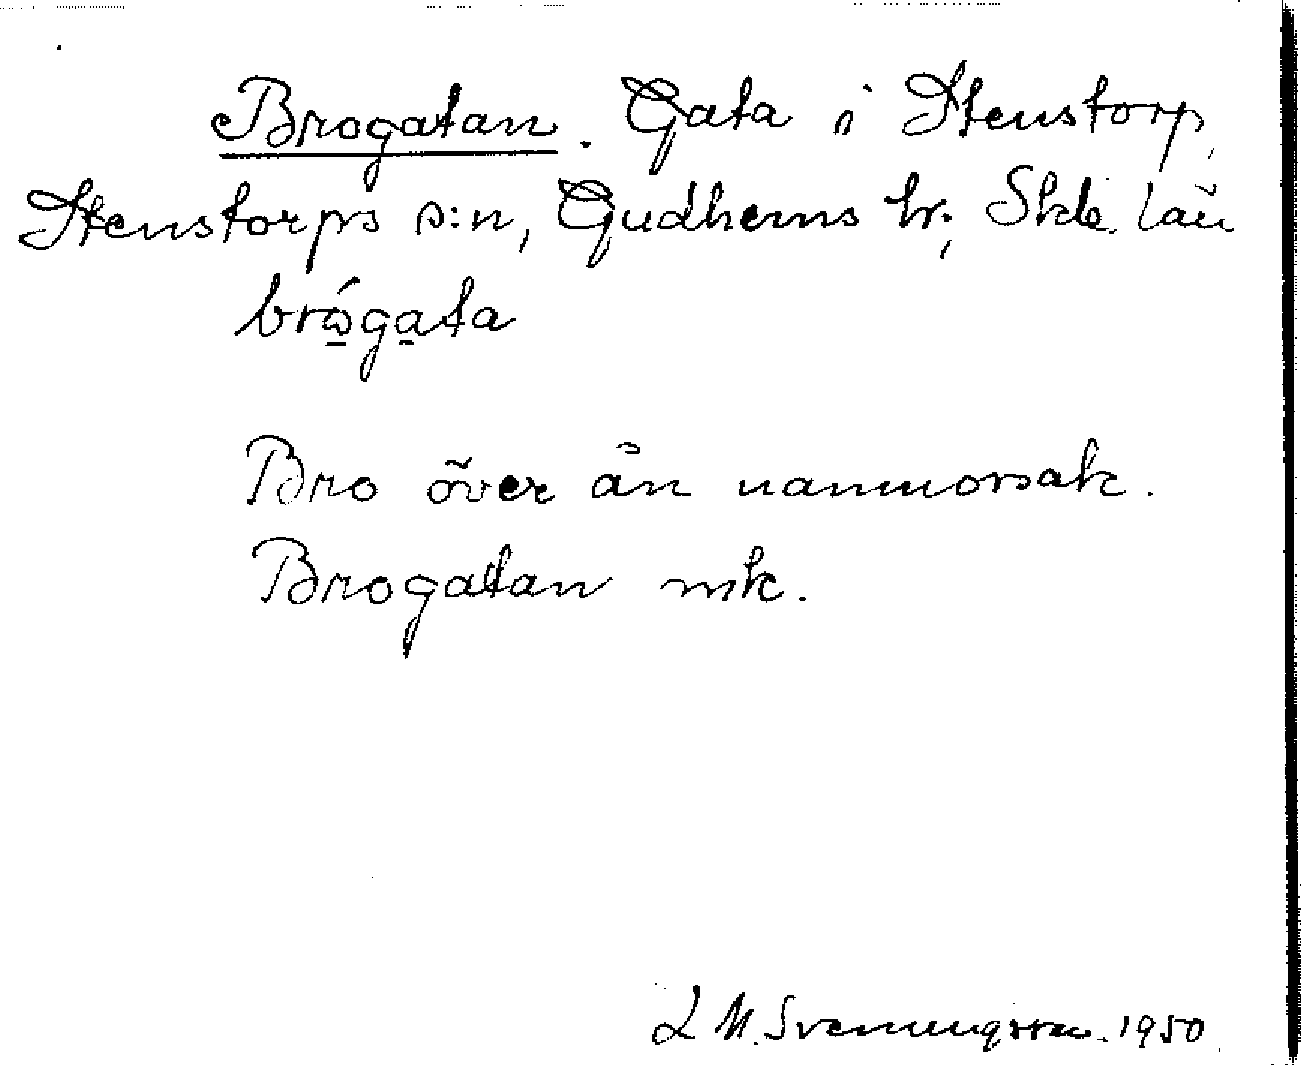 Brogatan. Gata i Stenstorp,
Stenstorps s:n, Gudhems hr; Skb. län
brógata
Bro över ån namnorsak.
Brogatan nsk.
L M. Svenungsson. 1950